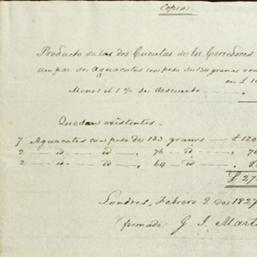 Copia.
Producto de las dos Cuentas de los Corredores
Un par de Aguacates con peso de 130 granos
Menos el 1 % de descuento
Quedan existentes
7 Aguacates con peso de 183 granos — £ 120
2 — id — id — 76 — id —
2 — id — id — 64 — id —
£ 27
Londres, Febrero 2 de 1827
firmado, J. I. Mart